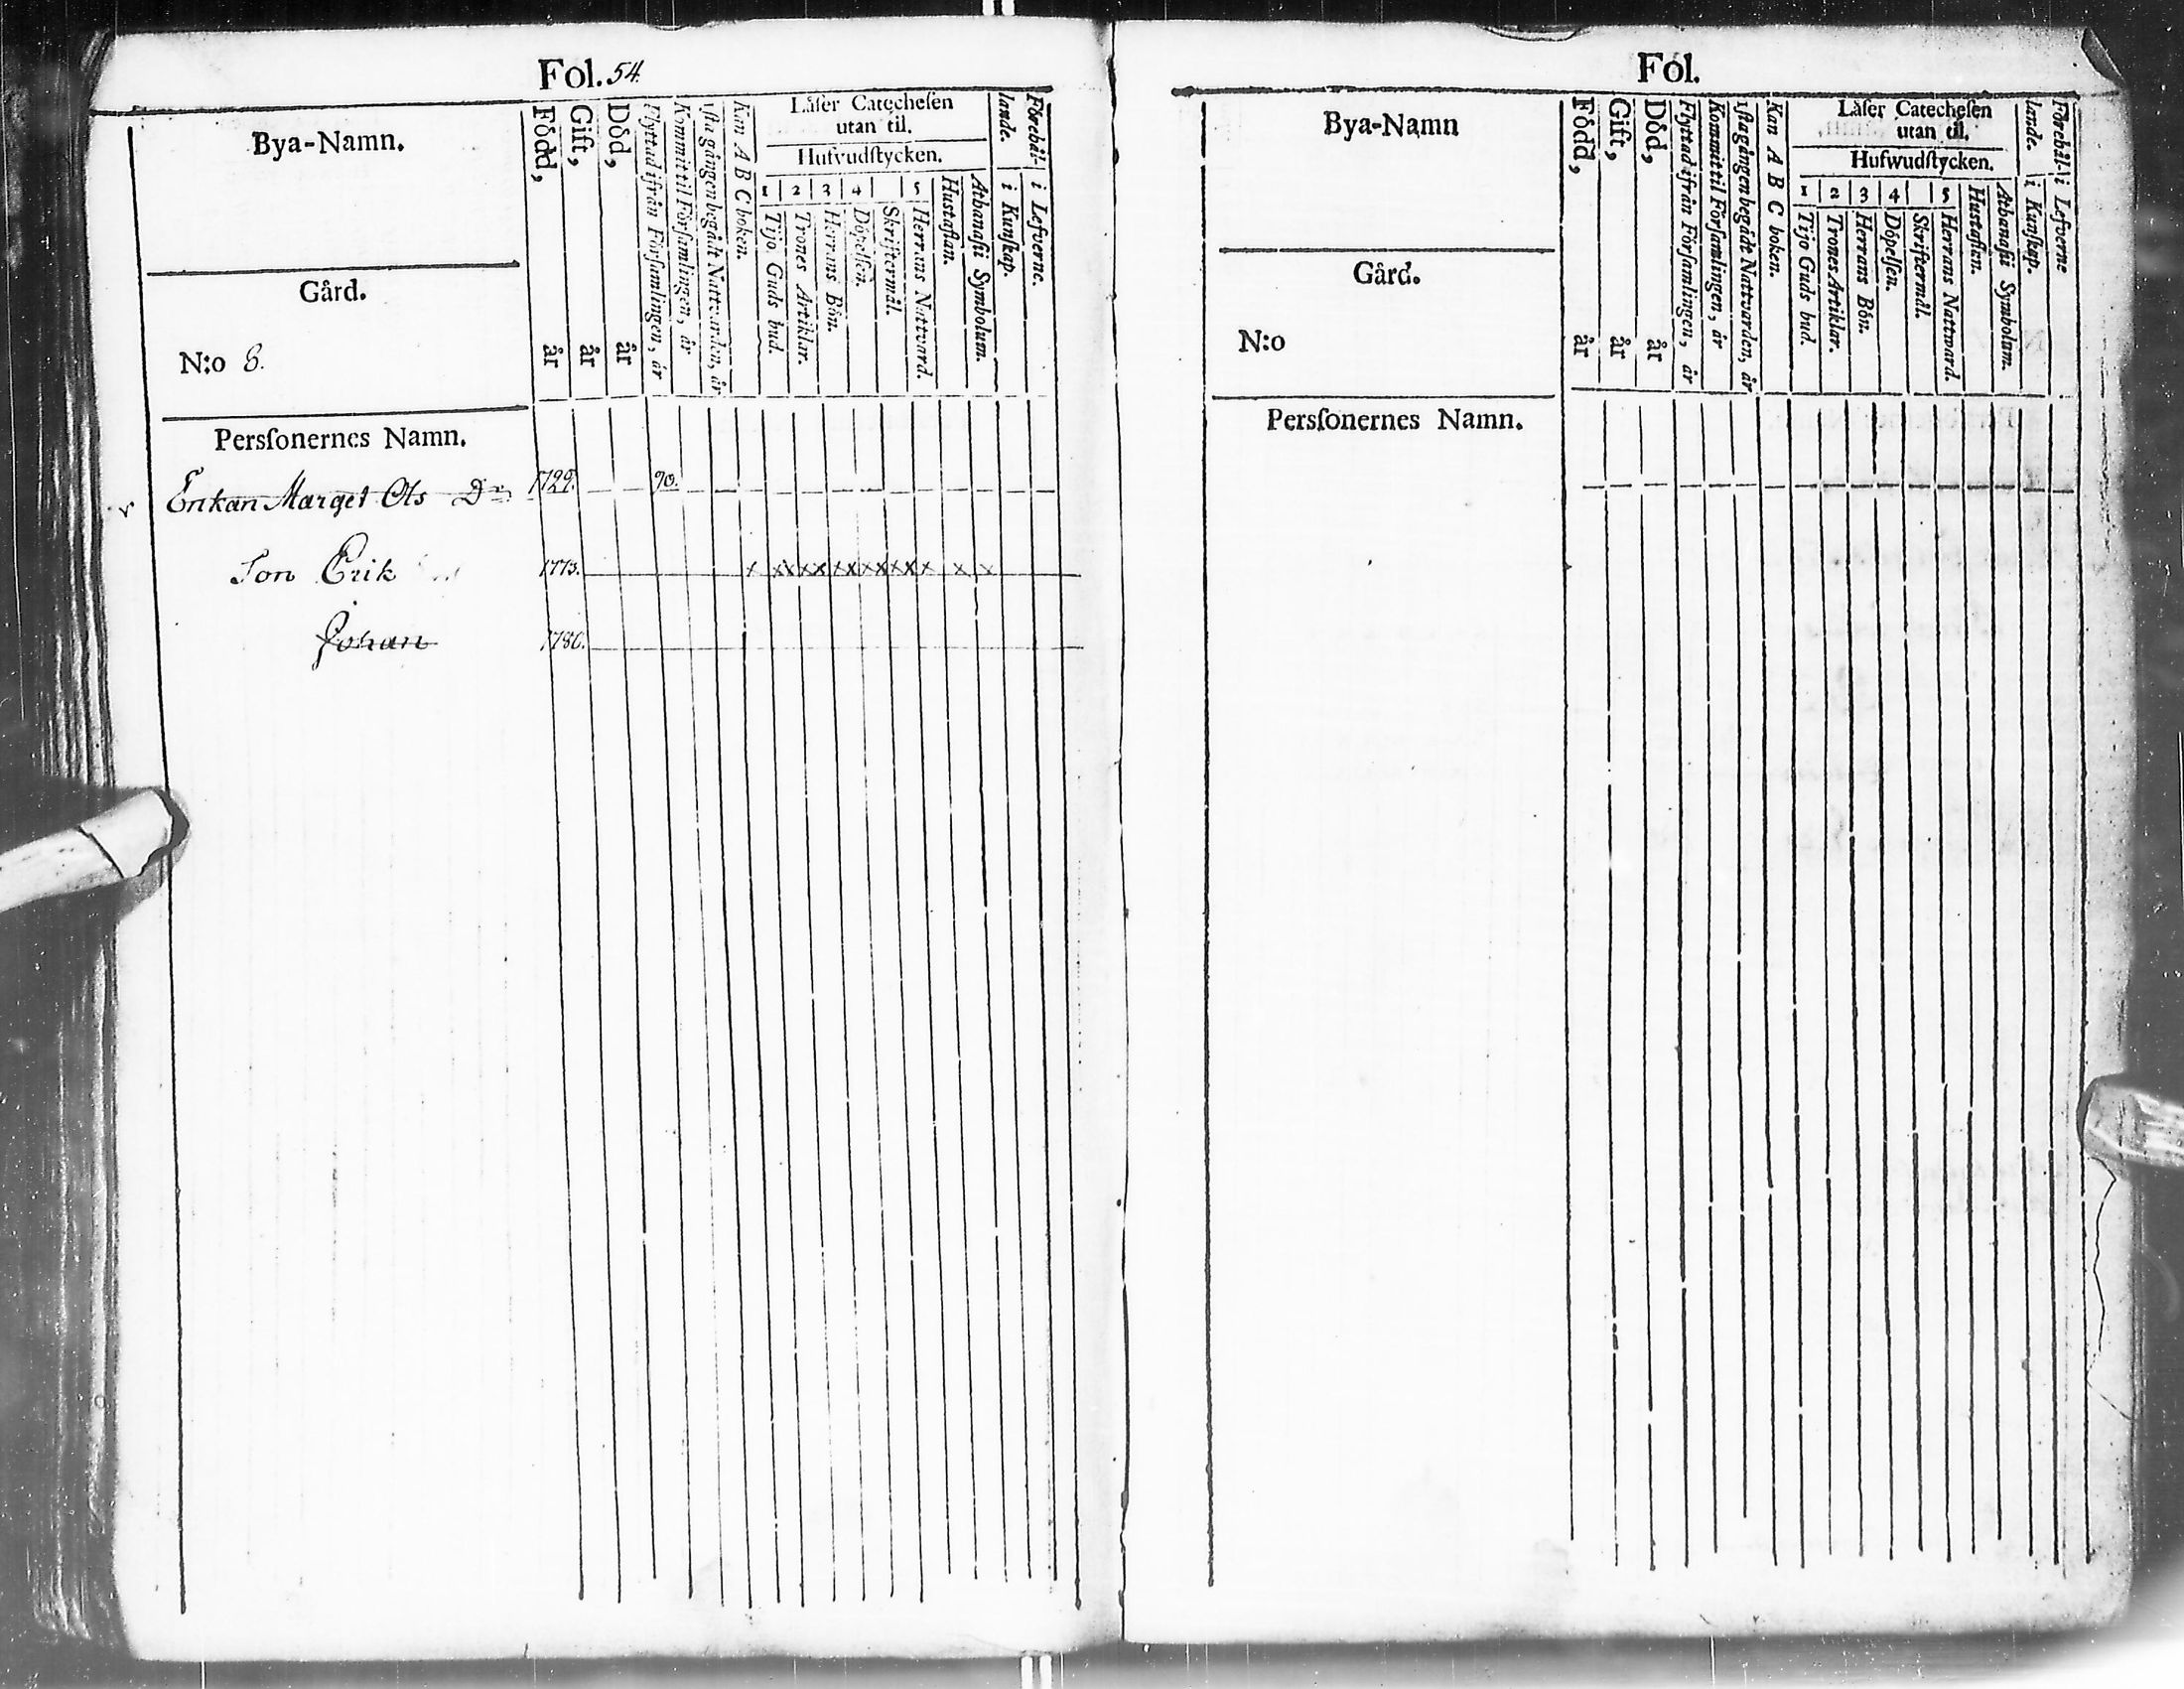 Fol. 54.
Bya-Namn.
Gård.
N:o 8.
Född, år
Gift, år
Död, år
Flyttad ifrån Församlingen, år
Kommit til Församlingen, år
1sta gången begådt Nattvarden, år
Kan A B C boken.
Läſer Catecheſen
utan til.
Hufvudſtycken.
1 2 3 4 5
Tijo Guds bud.
Trones Artiklar.
Herrans Bön.
Döpelſen.
Skriftermål.
Herrans Nattvard.
Huſtaflan.
Athanaſii Symbolum.
Förehål-
lande.
i Kunſkap.
i Lefverne.
Persſonernes Namn.
Enkan Marget Ols Dr 1729. 90.
Son Erik 1773. x xx xx xx xx xx x x x
Johan 1780.
Fol.
Bya-Namn
Gård.
N:o
Född, år
Gift, år
Död, år
Flyttad ifrån Församlingen, år
Kommit til Församlingen, år
1sta gången begådt Nattvarden, år
Kan A B C boken.
Läſer Catecheſen
utan til.
Hufwudſtycken.
1 2 3 4 5
Tijo Guds bud.
Trones Artiklar.
Herrans Bön.
Döpelſen.
Skriftermål.
Herrans Nattvard.
Huſtaflan.
Athanaſii Symbolum.
Förehål-
lande.
i Kunſkap.
i Lefverne
Persſonernes Namn.